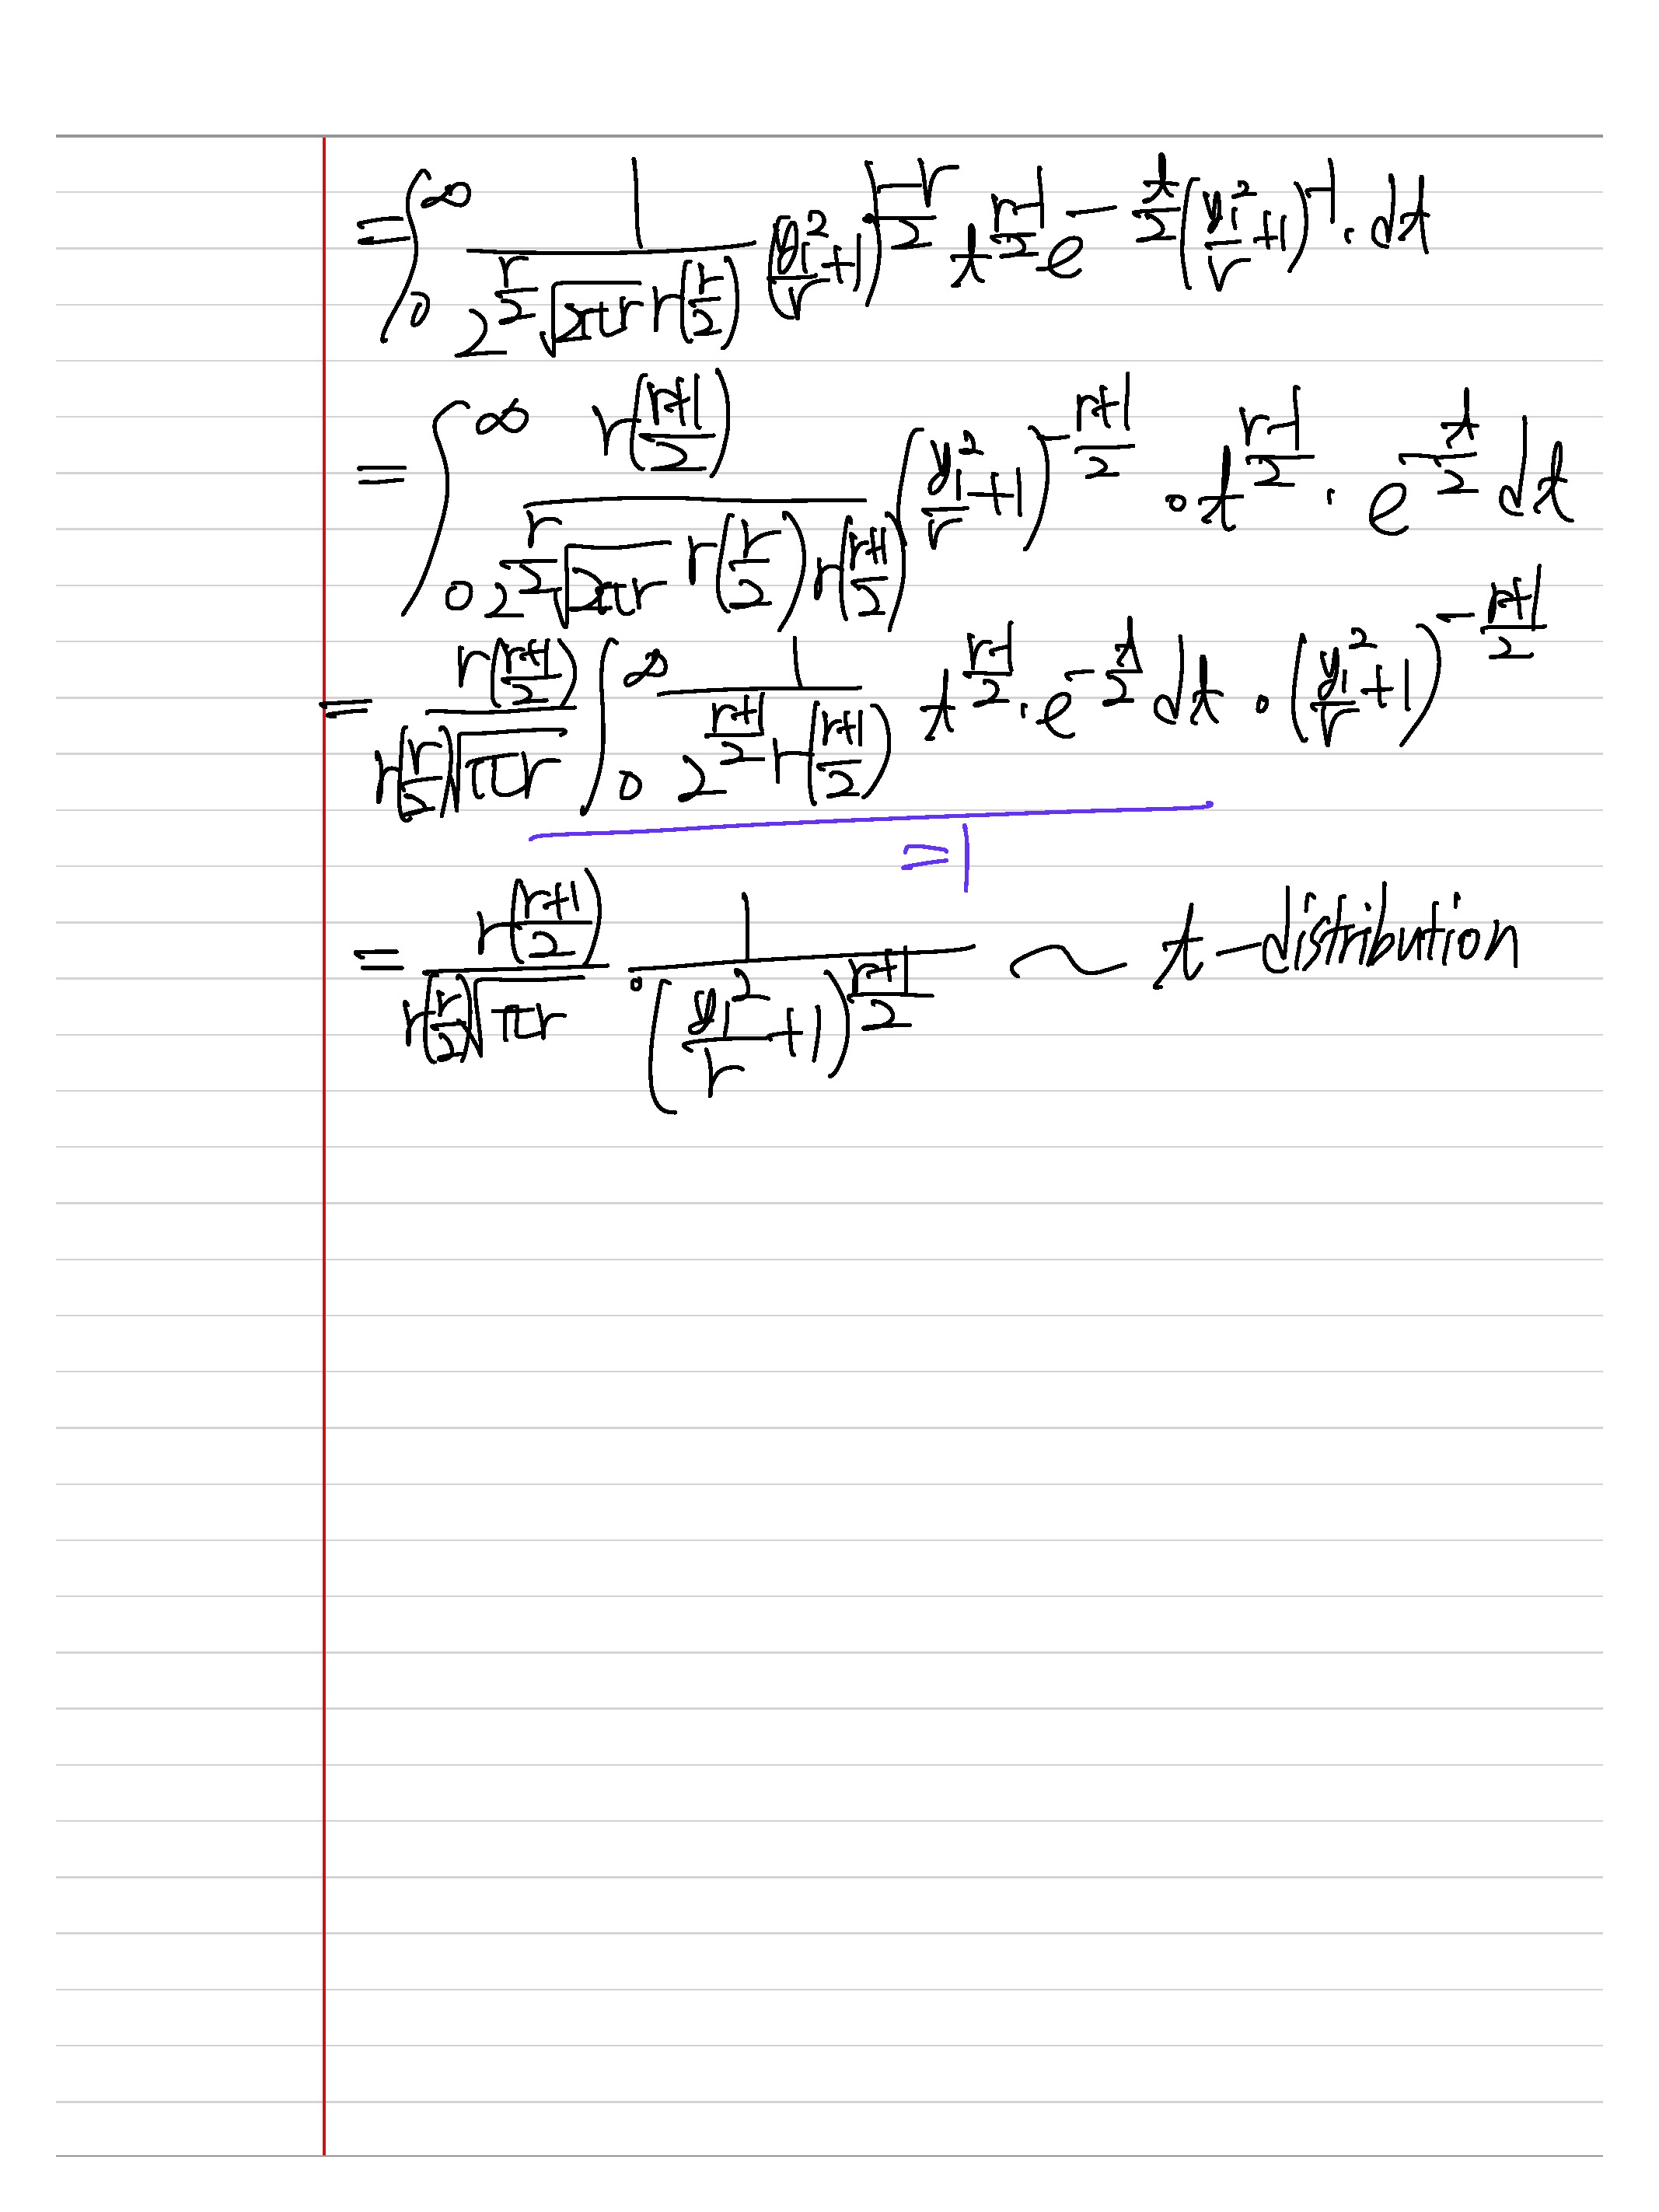 = ∫₀^∞ 1/(2^(r/2) √(2πr) Γ(r/2)) (y₁²/r + 1)^((1-r)/2) t^((r-1)/2) e^(-t/2) (y₁²/r + 1)^(-1) · dt
= ∫₀^∞ Γ((r+1)/2)/(2^(r/2) √(2πr) Γ(r/2) Γ((r+1)/2)) (y₁²/r + 1)^(-(r+1)/2) · t^((r-1)/2) · e^(-t/2) dt
= Γ((r+1)/2)/(Γ(r/2) √(πr)) ∫₀^∞ 1/(2^((r+1)/2) Γ((r+1)/2)) t^((r-1)/2) · e^(-t/2) dt · (y₁²/r + 1)^(-(r+1)/2)
=1
= Γ((r+1)/2)/(Γ(r/2) √(πr)) · 1/(y₁²/r + 1)^((r+1)/2) ~ t-distribution